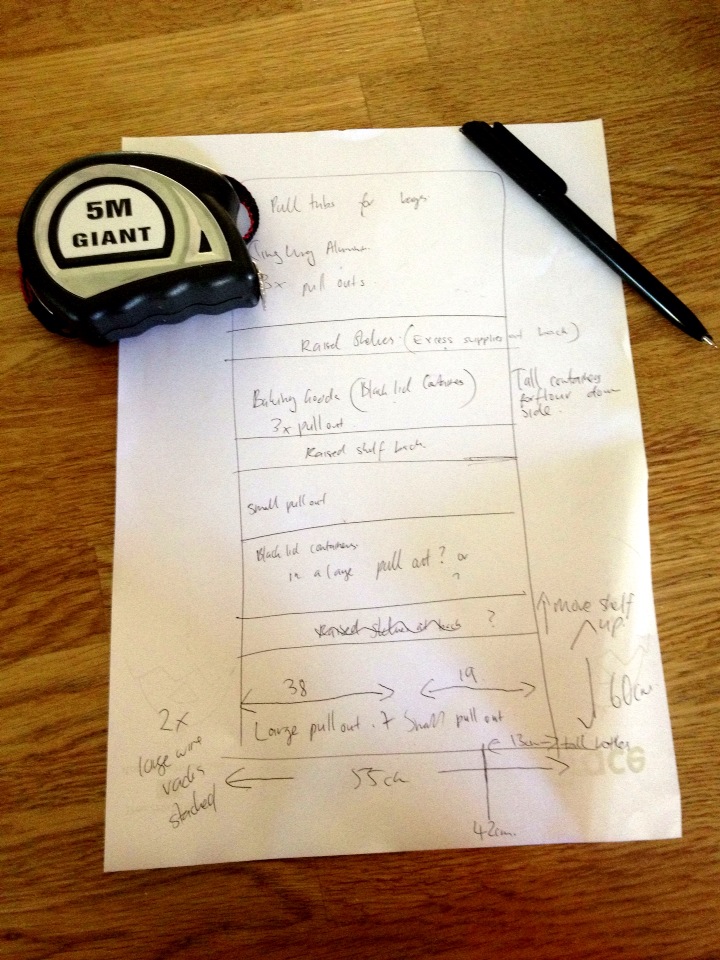 5M
GIANT
Pull tubs for
3x pull outs
Raised Shelves (Excess supplies at back)
Baking Goods (Black lid Containers)
3x pull out
Tall containers
for flour down
side.
Raised shelf back
Small pull out
Black lid containers
in a large pull out? or
?
?
↑ Move shelf
up
38
19
60cm
Large pull out + Small pull out
2x
large wire
racks
stacked
13cm → tall bottles
55cm
42cm.